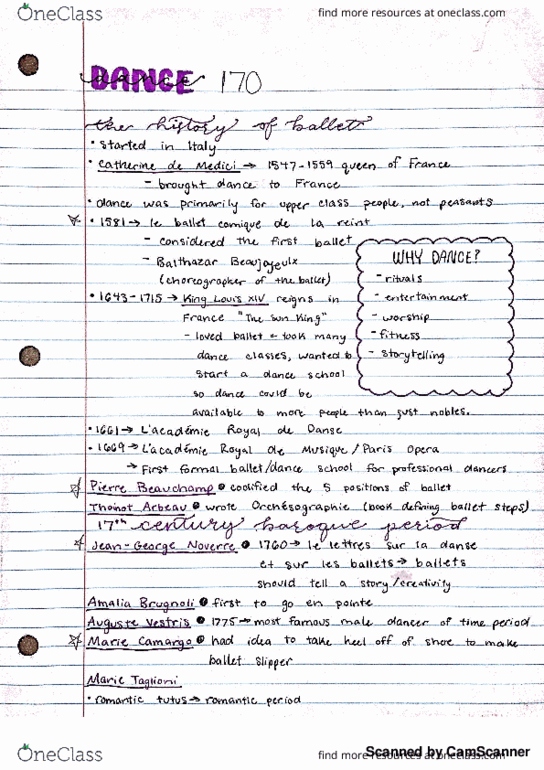 OneClass
find more resources at oneclass.com
DANCE 170
the history of ballet
• started in Italy
• Catherine de Medici → 1547-1559 queen of France
- brought dance to France
• dance was primarily for upper class people, not peasants
☆ • 1581 → le ballet comique de la reint
- considered the first ballet
- Balthazar Beaujoyeulx
(choreographer of the ballet)
• 1643-1715 → King Louis XIV reigns in
France "The Sun King"
- loved ballet + took many
dance classes, wanted to
start a dance school
so dance could be
available to more people than just nobles.
WHY DANCE?
- rituals
- entertainment
- worship
- fitness
- storytelling
• 1661 → L'académie Royal de Danse
• 1669 → L'académie Royal de Musique / Paris Opera
→ First formal ballet/dance school for professional dancers
☆ Pierre Beauchamp • codified the 5 positions of ballet
Thoinot Arbeau • wrote Orchésographie (book defining ballet steps)
17th century baroque period
☆ Jean-George Noverre • 1760 → le lettres sur la danse
et sur les ballets → ballets
should tell a story/creativity
Amalia Brugnoli • first to go en pointe
Auguste Vestris • 1775 → most famous male dancer of time period
☆ Marie Camargo • had idea to take heel off of shoe to make
ballet slipper
Marie Taglioni
• romantic tutus → romantic period
OneClass
find more resources at oneclass.com
Scanned by CamScanner